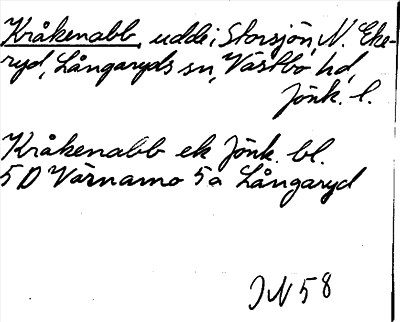 Kråkenabb, udde i Storsjön, N. Eke-
ryd, Långaryds sn, Västbo hd,
Jönk. l.
Kråkenabb ek Jönk. bl.
5 D Värnamo 5a Långaryd
JN 58